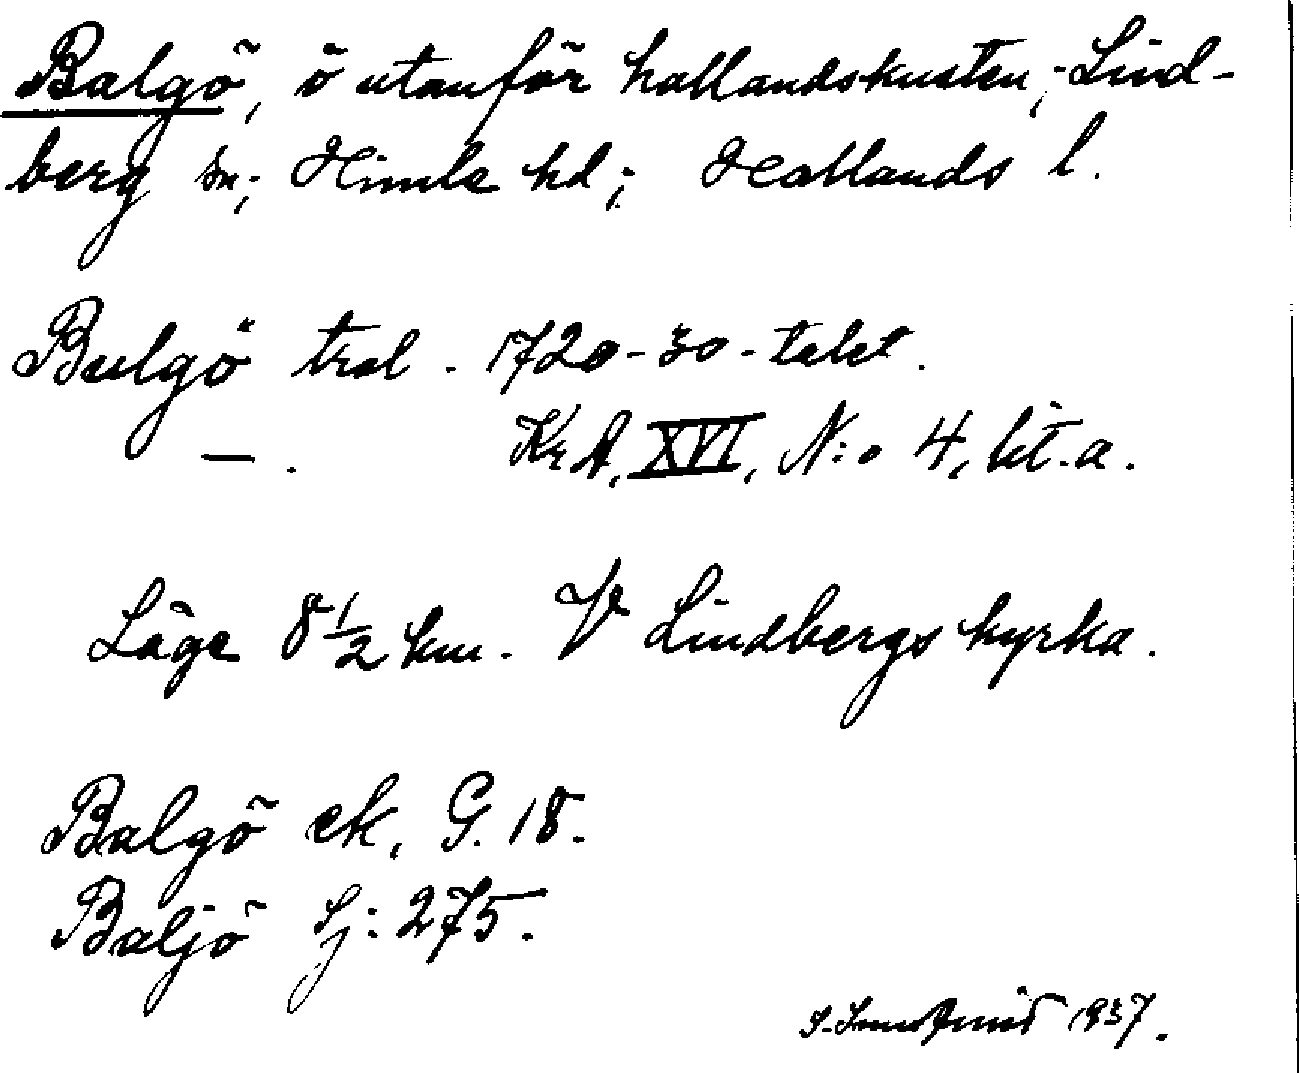 Balgö, ö utanför hallandskusten; Lind-
berg sn; Himle hd; Hallands l.
Bulgö tral. 1720-30-talet.
— . KrA, XVI, N:o 4, lit. a.
Läge 8 1/2 km. V Lindbergs kyrka.
Balgö ek. G. 18.
Baljö Sj: 275.
1937.